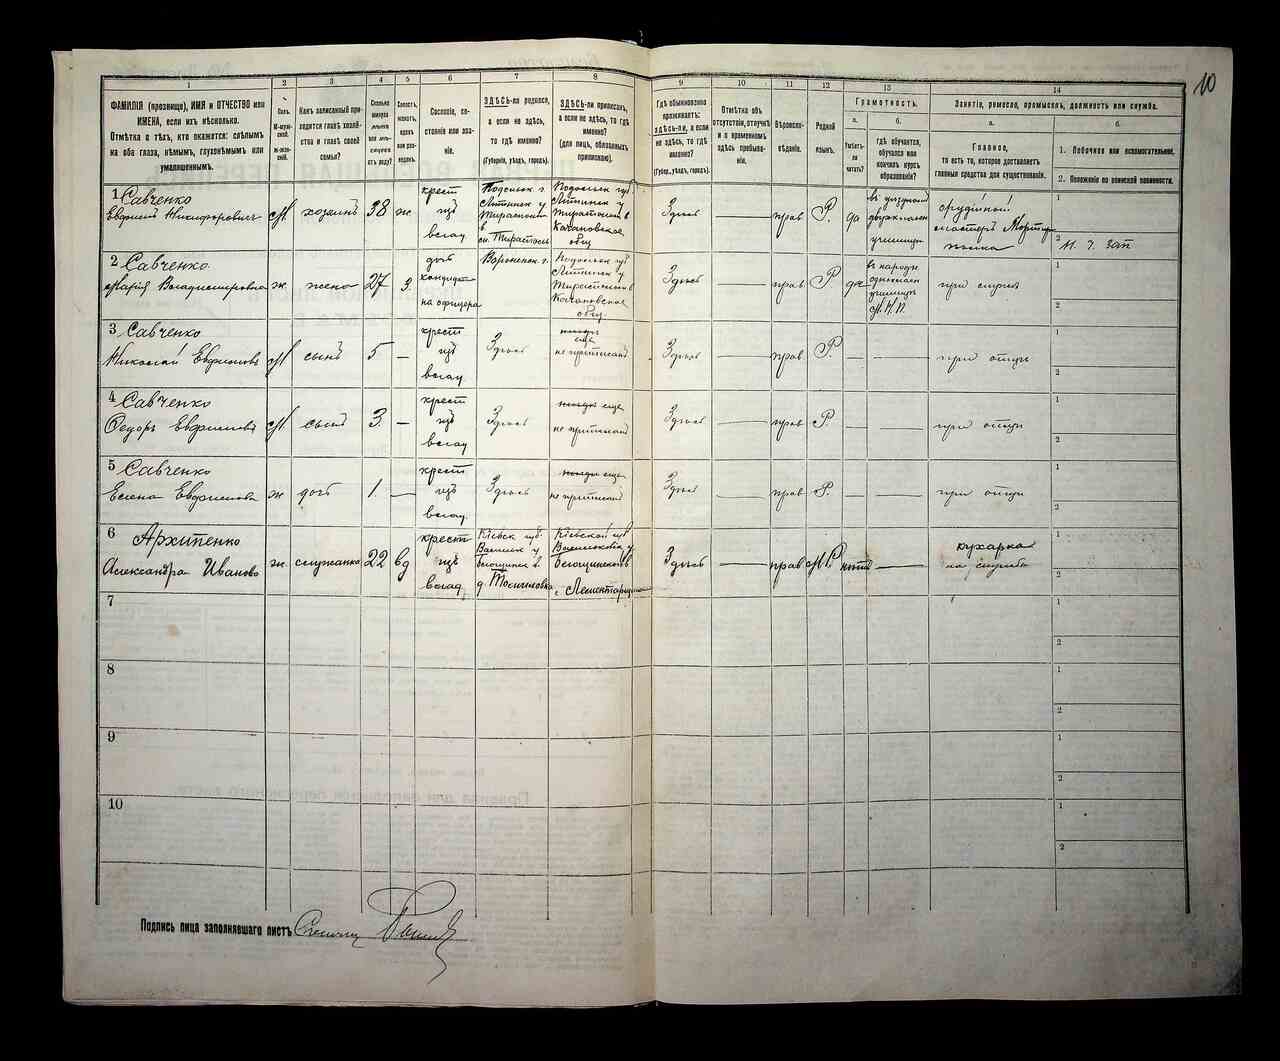 10
1
2
3
4
5
6
7
8
9
10
11
12
13
14
ФАМИЛІЯ (прозвище), ИМЯ и ОТЧЕСТВО или
ИМЕНА, если ихъ нѣсколько.
Отмѣтка о тѣхъ, кто окажется: слѣпымъ
на оба глаза, нѣмымъ, глухонѣмымъ или
умалишеннымъ.
Полъ.
М-муж-
ской.
Ж-жен-
скій.
Какъ записанный при-
ходится главѣ хозяй-
ства и главѣ своей
семьи?
Сколько
минуло
лѣтъ
или мѣ-
сяцевъ
отъ роду?
Холостъ,
женатъ,
вдовъ
или раз-
веденъ.
Сословіе, со-
стояніе или зва-
ніе.
ЗДѢСЬ-ли родился,
а если не здѣсь,
то гдѣ именно?
(Губернія, уѣздъ, городъ).
ЗДѢСЬ-ли приписанъ,
а если не здѣсь, то гдѣ
именно?
(для лицъ, обязанныхъ
припискою).
Гдѣ обыкновенно
проживаетъ:
ЗДѢСЬ-ЛИ, а если
не здѣсь, то гдѣ
именно?
(Губерн., уѣздъ, городъ).
Отмѣтка объ
отсутствіи, отлучкѣ
и о временномъ
здѣсь пребыва-
ніи.
Вѣроиспо-
вѣданіе.
Родной
языкъ.
Грамотность.
а.
Умѣетъ-
ли
читать?
б.
гдѣ обучается,
обучался или
кончилъ курсъ
образованія?
Занятіе, ремесло, промыселъ, должность или служба.
а.
Главное,
то есть то, которое доставляетъ
главныя средства для существованія.
б.
1. Побочное или вспомогательное.
2. Положеніе по воинской повинности.
1 Савченко
Евфимій Никифоровичъ
М
хозяинъ
38
ж
крест
изъ
влад
Подольск г.
Литинск у
в
Подольск губ
Литинск у
общ
Здѣсь
прав
Р.
да
училищѣ
мастеръ
1
2
зап
2 Савченко
Марія Владимировна
ж
жена
27
З.
доч
кандидат
на офицера
Воронежск г.
Подольск губ
Литинск у
общ.
Здѣсь
прав
Р
да
училищѣ
М.Н.П.
при мужѣ
1
2
3 Савченко
Николай Евфимовъ
М
сынъ
5
крест
изъ
влад
Здѣсь
еще
не приписанъ
Здѣсь
прав
Р.
при отцѣ
1
2
4 Савченко
Федоръ Евфимовъ
М
сынъ
3
крест
изъ
влад
Здѣсь
еще
не приписанъ
Здѣсь
прав
Р.
при отцѣ
1
2
5 Савченко
Елена Евфимова
ж
доч
1
крест
изъ
влад
Здѣсь
еще
не приписана
Здѣсь
прав
Р.
при отцѣ
1
2
6 Архипенко
Александра Иваново
ж
служанка
22
вд
крест
изъ
влад
Кіевск губ.
у
д.
Кіевской губ
у
с.
Здѣсь
прав
М.Р.
нѣтъ
кухарка
1
2
7
1
2
8
1
2
9
1
2
10
1
2
Подпись лица заполнявшаго листъ